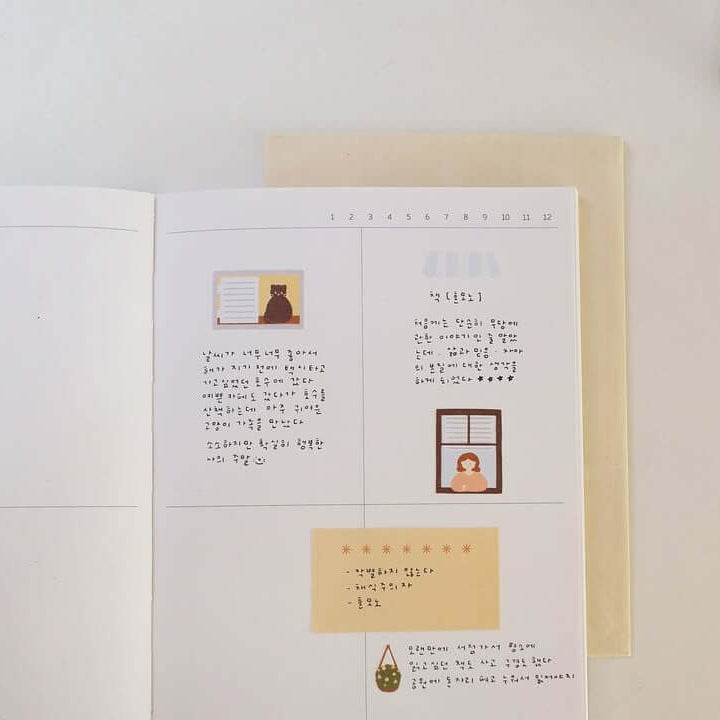 1 2 3 4 5 6 7 8 9 10 11 12
날씨가 너무너무 좋아서
해가 지기 전에 백이타고
가고싶었던 호수에 갔다
예쁜 카페도 갔다가 호수를
산책하는데 아주 귀여운
고양이 가족을 만났다
소소하지만 확실히 행복한
나의 주말
책 [혼모노]
처음에는 단순히 무당에
관한 이야기인 줄 알았
는데, 삶과 믿음·자아
의 본질에 대한 생각을
하게 되었다 ★★★★
- 작별하지 않는다
- 채식주의자
- 혼모노
오랜만에 서점가서 평소에
읽고싶던 책도 사고 구경도 했다
공원에 돗자리 펴고 누워서 읽어야지